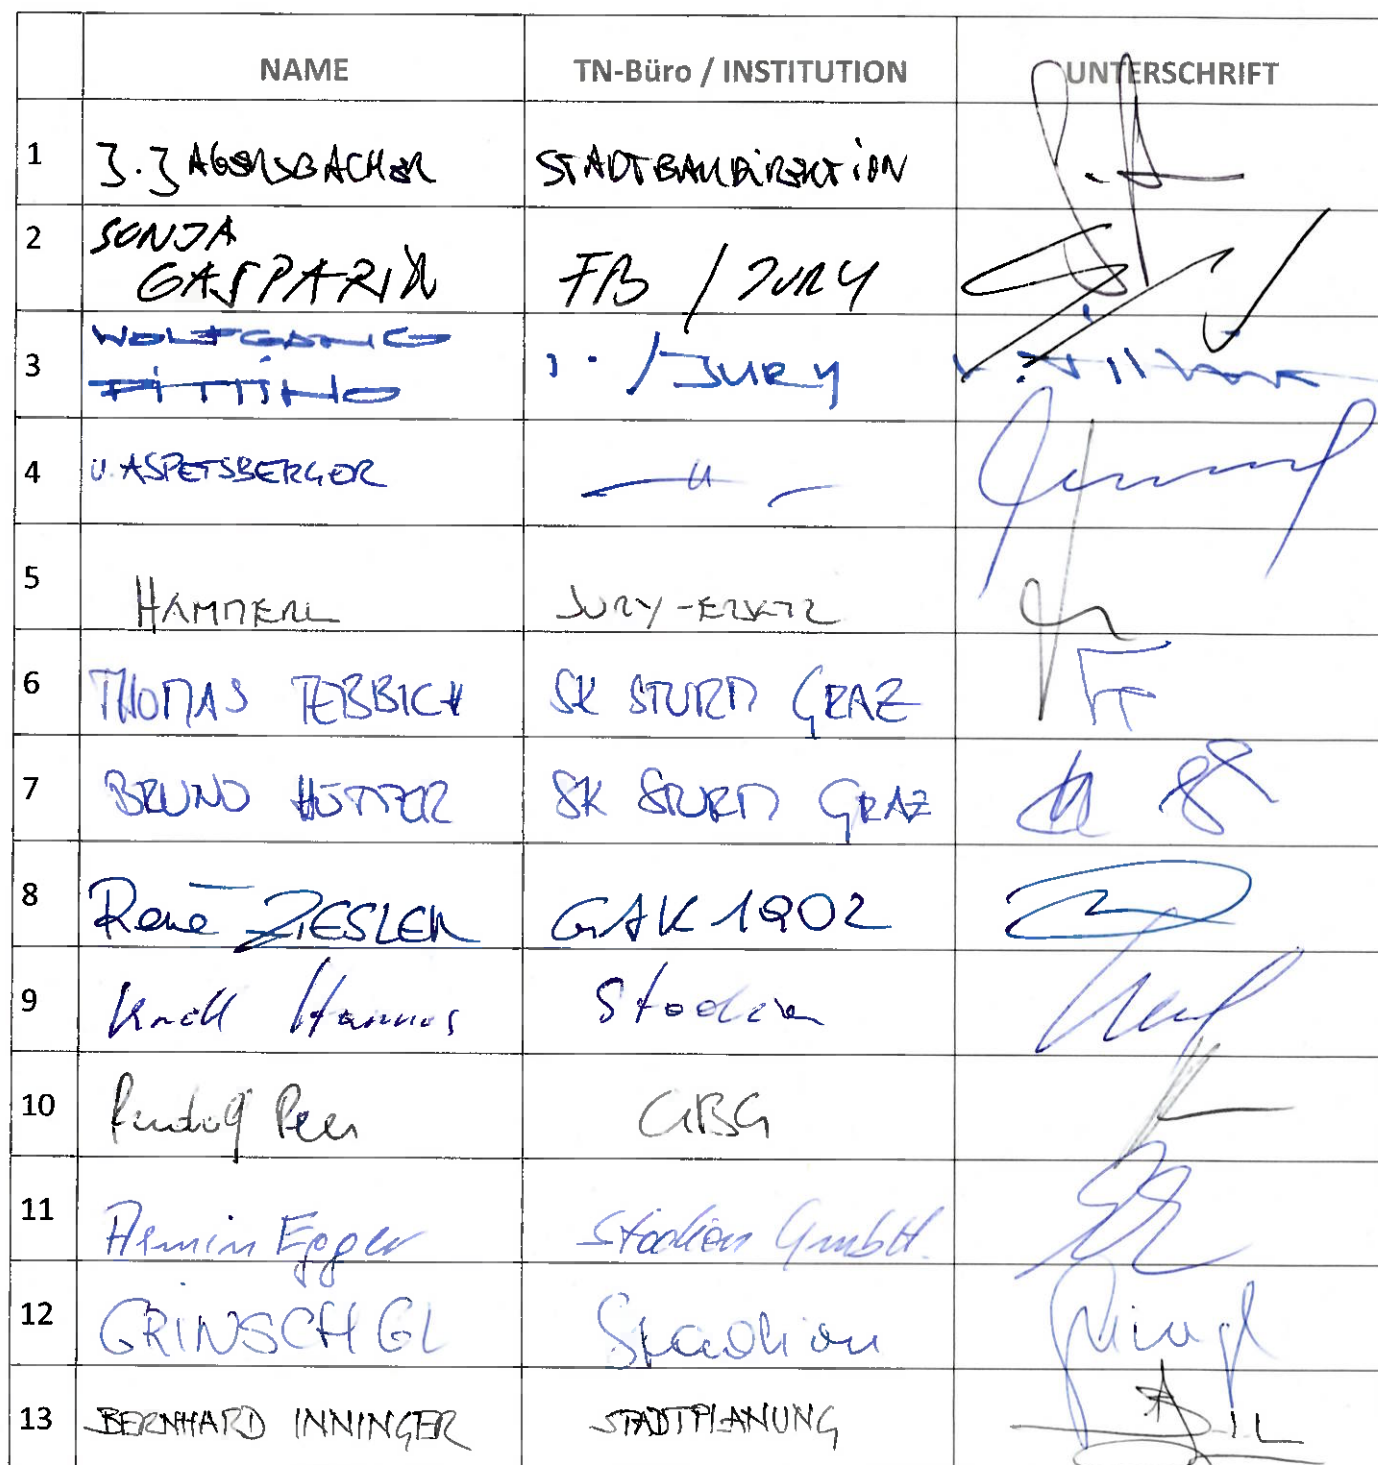 NAME TN-Büro / INSTITUTION UNTERSCHRIFT
1 J.J AGERSBACHER STADTBAUDIREKTION
2 SONJA GASPARIN FB / JURY
3 WOLFGANG PITTINO /JURY
4 U. ASPETSBERGER — " —
5 HAMMERL JURY-ERSATZ
6 THOMAS TEBBICH SK STURM GRAZ
7 BRUNO HÜTTER SK STURM GRAZ
8 René ZIESLER GAK 1902
9 Knoll Hannes Stadion
10 Rudolf Peer GBG
11 Armin Egger Stadion GmbH.
12 GRINSCHGL Stadion
13 BERNHARD INNINGER STADTPLANUNG